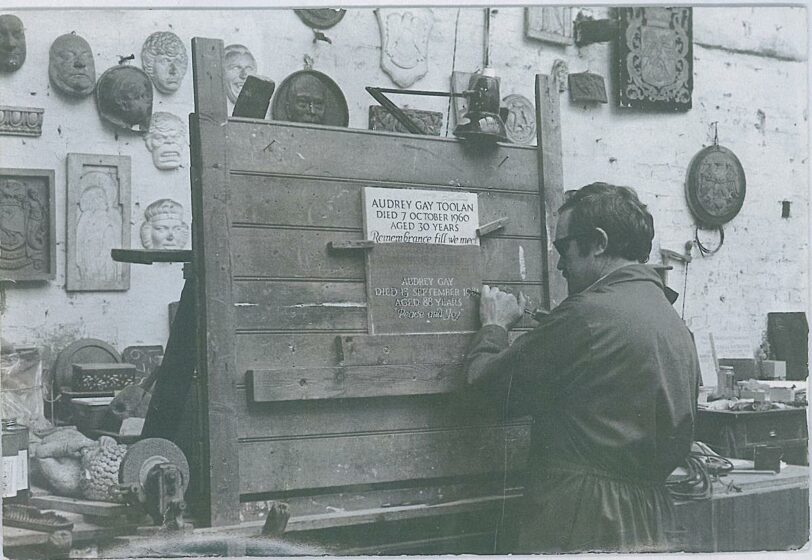 AUDREY GAY TOOLAN
DIED 7 OCTOBER 1960
AGED 30 YEARS
Remembrance till we meet
AUDREY GAY
DIED 15 SEPTEMBER
AGED 88 YEARS
'Peace and Joy'